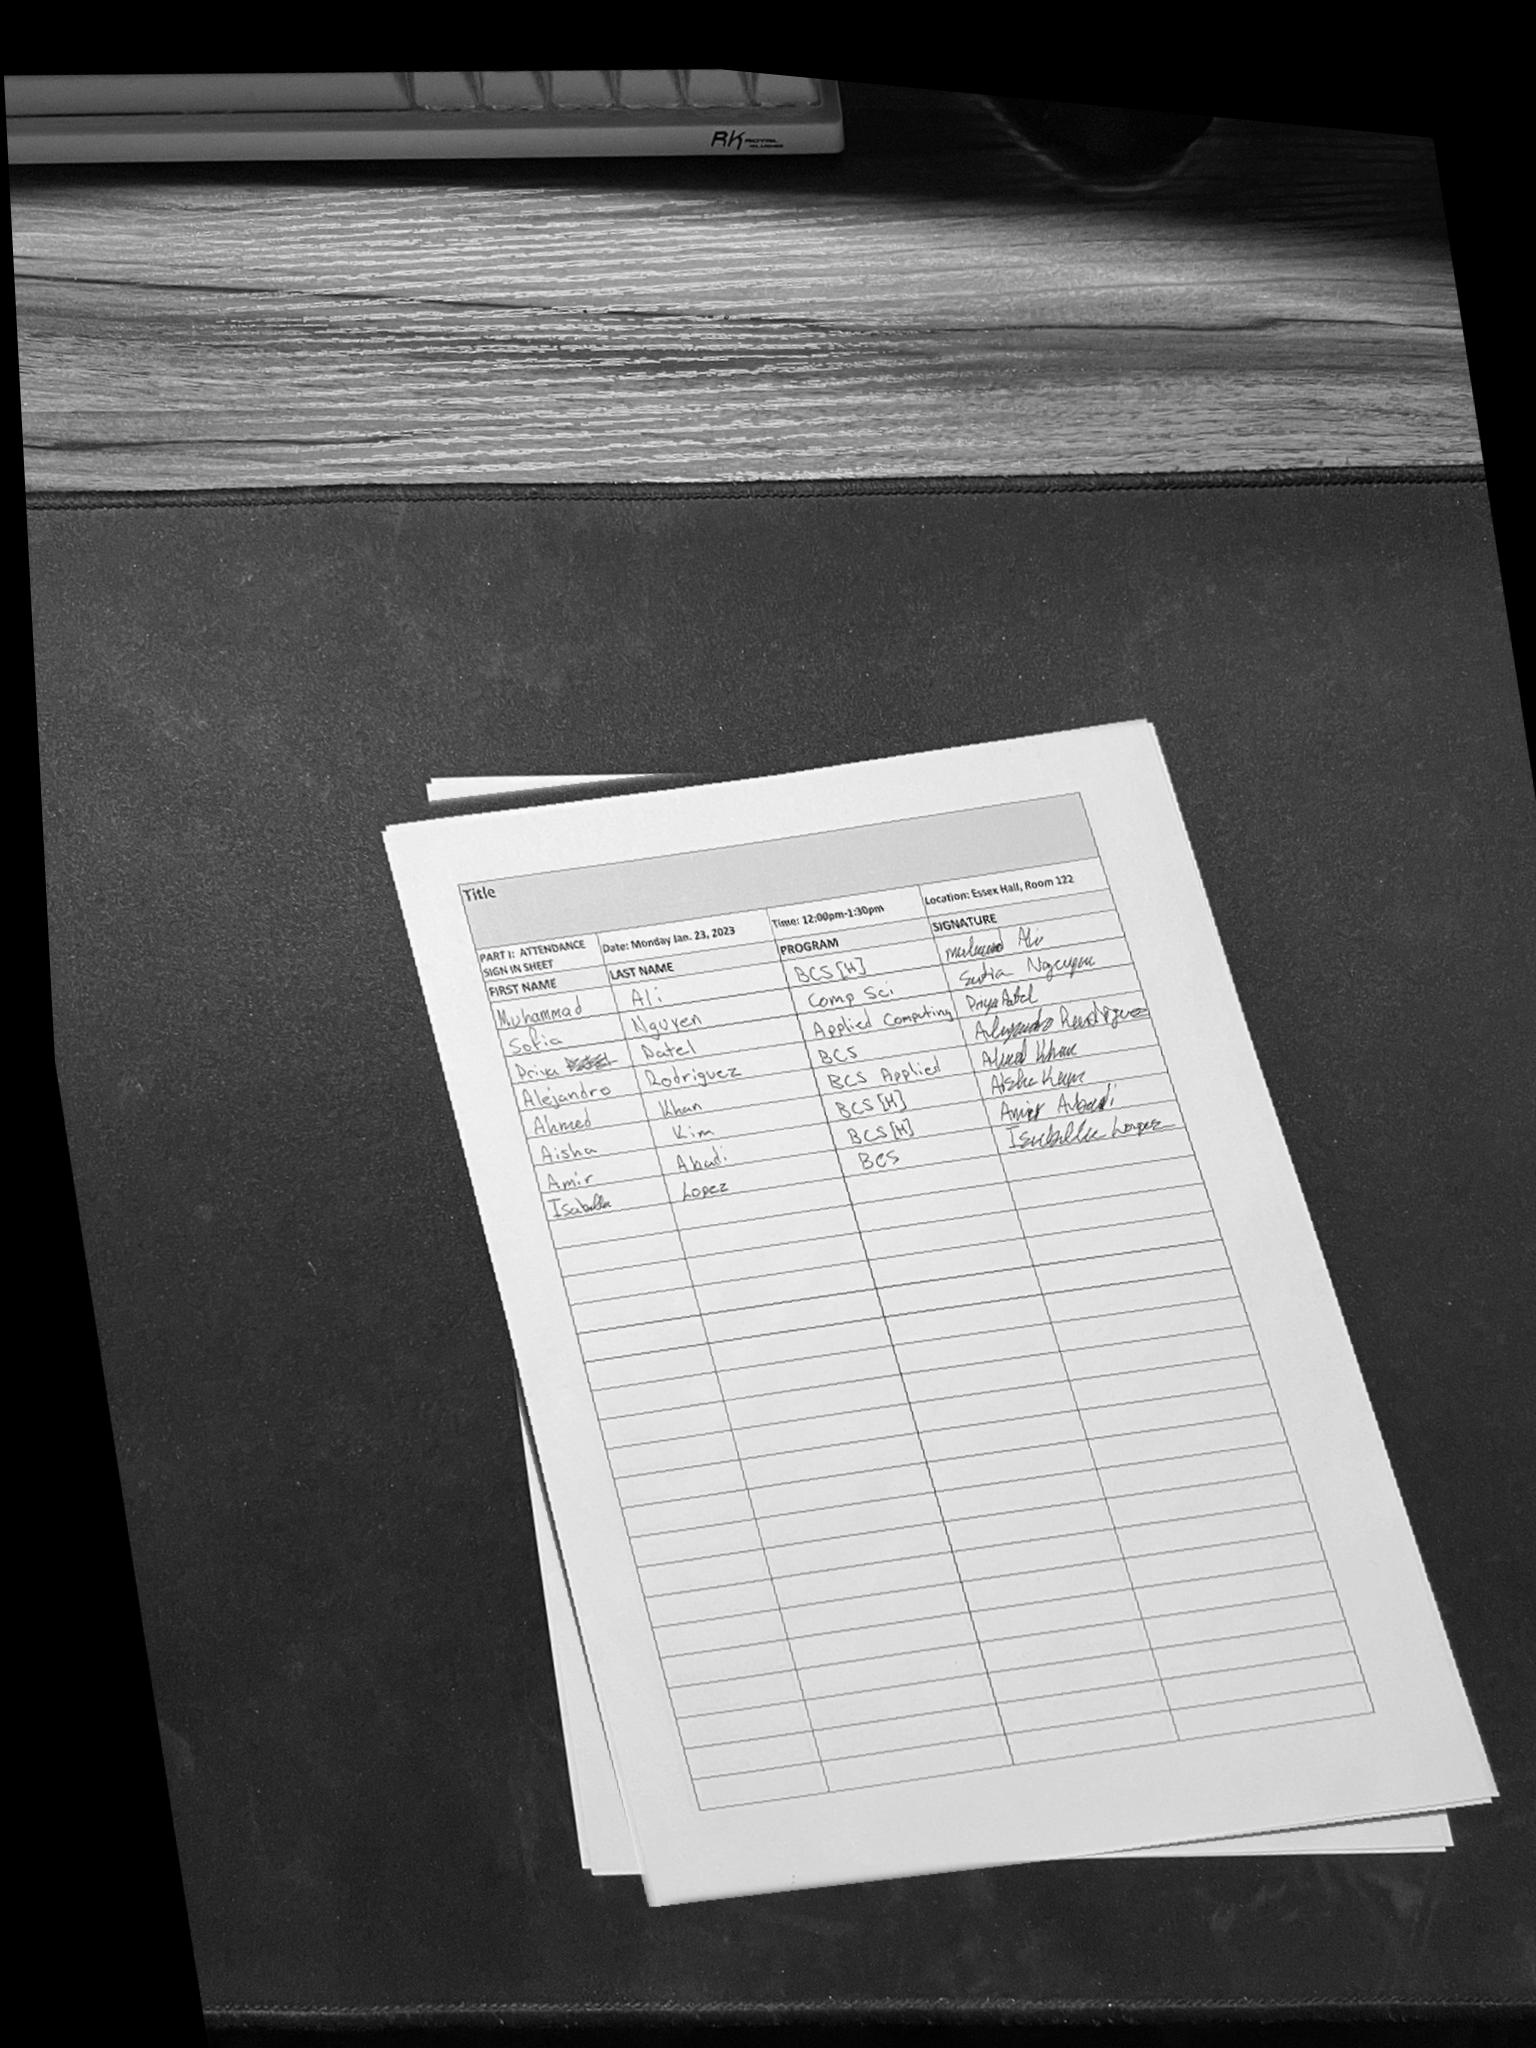 RK ROYAL KLUDGE
Title
PART I: ATTENDANCE SIGN IN SHEET Date: Monday Jan. 23, 2023 Time: 12:00pm-1:30pm Location: Essex Hall, Room 122
FIRST NAME LAST NAME PROGRAM SIGNATURE
Muhammad Ali BCS [H] Ali
Sofia Nguyen Comp Sci Sofia Nguyen
Priya Patel Applied Computing Priya Patel
Alejandro Rodriguez BCS Alejandro Rodriguez
Ahmed Khan BCS Applied Ahmed Khan
Aisha Kim BCS [H] Aisha
Amir Abadi BCS [H] Amir Abadi
Isabella Lopez BCS Isabella Lopez